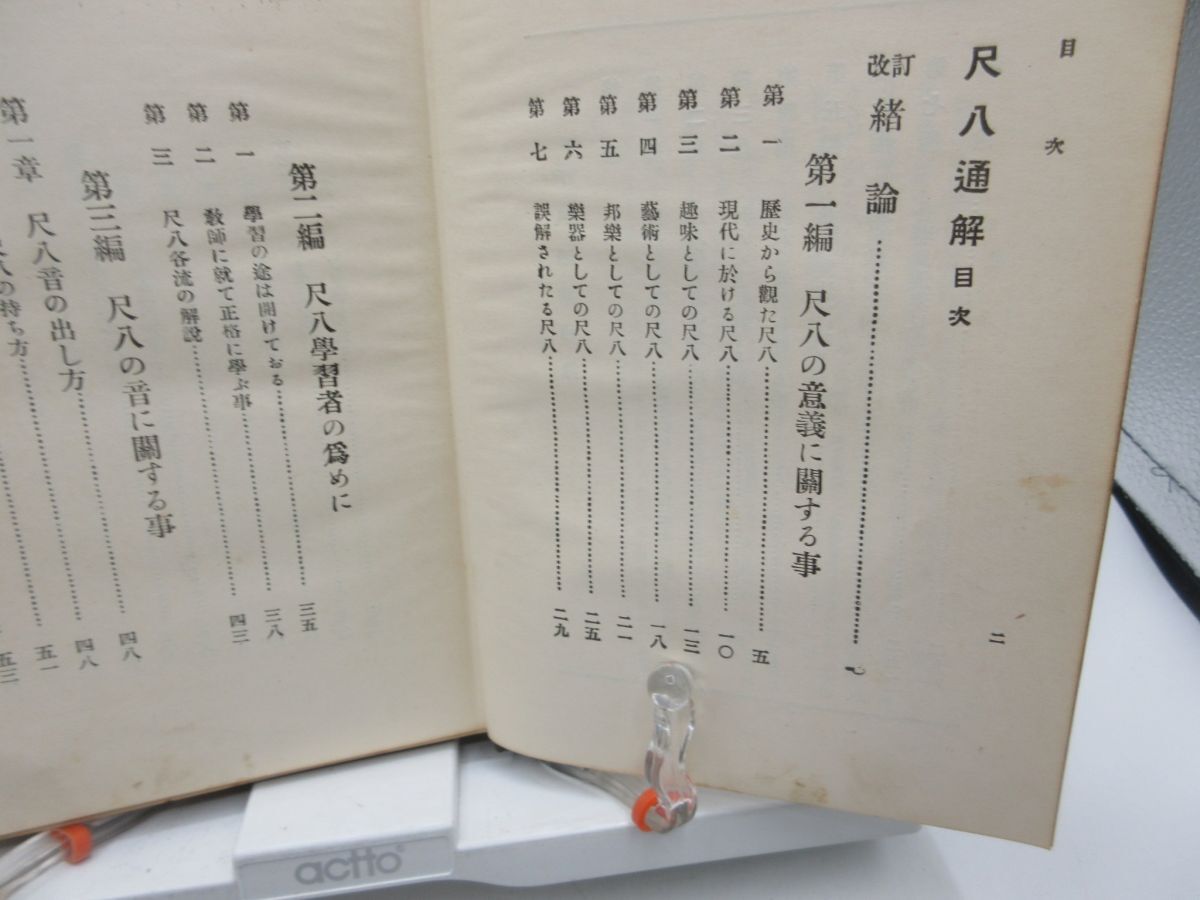 目次
二
尺八通解目次
改訂 緒論
第一編 尺八の意義に關する事
第一 歷史から觀た尺八 五
第二 現代に於ける尺八 一〇
第三 趣味としての尺八 一三
第四 藝術としての尺八 一八
第五 邦樂としての尺八 二一
第六 樂器としての尺八 二五
第七 誤解されたる尺八 二九
第二編 尺八學習者の爲めに
第一 學習の途は開けておる 三五
第二 敎師に就て正格に學ぶ事 三八
第三 尺八各流の解說 四三
第三編 尺八の音に關する事 四八
第一章 尺八音の出し方 四八
の持ち方
五一
五三
actto